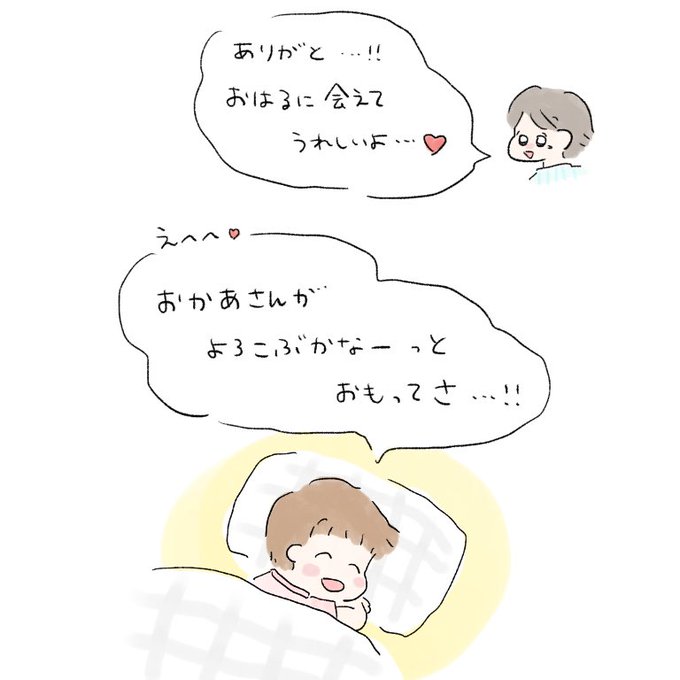 ありがと…!!
おはるに会えて
うれしいよ…♥
えへへ♥
おかあさんが
よろこぶかなーっと
おもってさ…!!